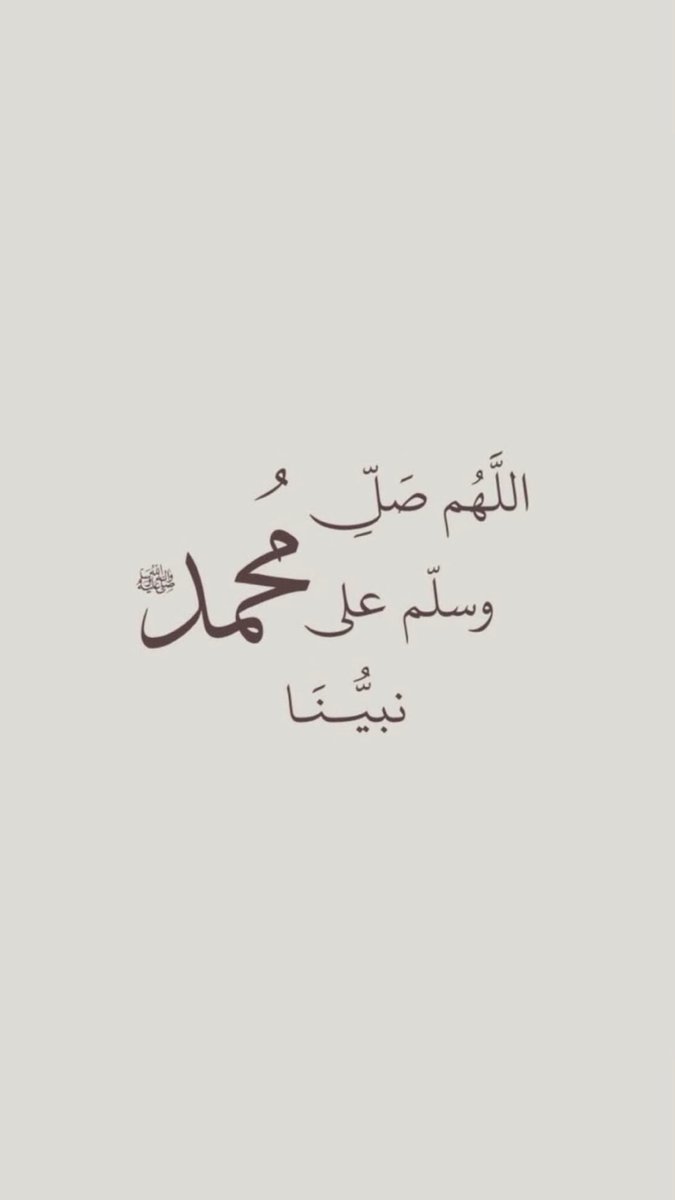 اللَّهُم صَلِّ
وسلّم على
نبيُّـنَا
مُحمد ﷺ